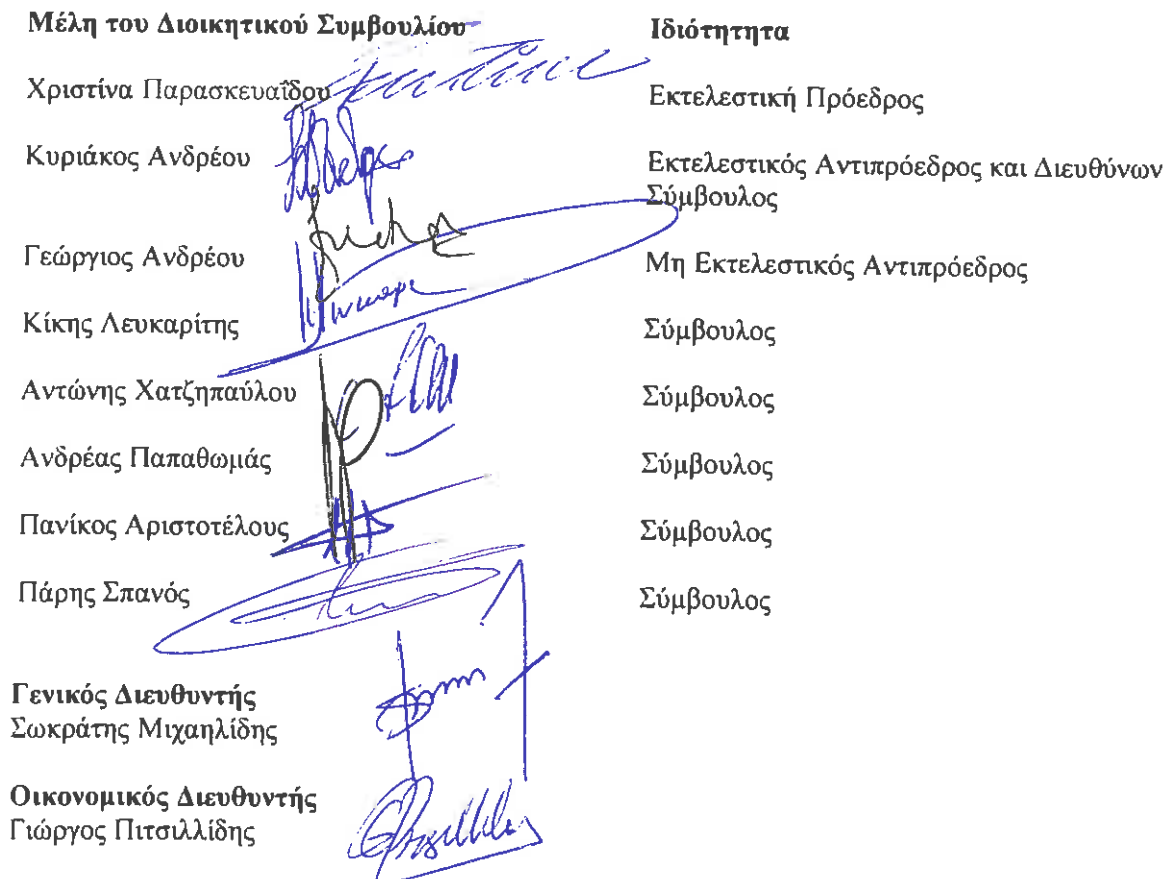 Μέλη του Διοικητικού Συμβουλίου Ιδιότητητα
Χριστίνα Παρασκευαΐδου Εκτελεστική Πρόεδρος
Κυριάκος Ανδρέου Εκτελεστικός Αντιπρόεδρος και Διευθύνων
Σύμβουλος
Γεώργιος Ανδρέου Μη Εκτελεστικός Αντιπρόεδρος
Κίκης Λευκαρίτης Σύμβουλος
Αντώνης Χατζηπαύλου Σύμβουλος
Ανδρέας Παπαθωμάς Σύμβουλος
Πανίκος Αριστοτέλους Σύμβουλος
Πάρης Σπανός Σύμβουλος
Γενικός Διευθυντής
Σωκράτης Μιχαηλίδης
Οικονομικός Διευθυντής
Γιώργος Πιτσιλλίδης